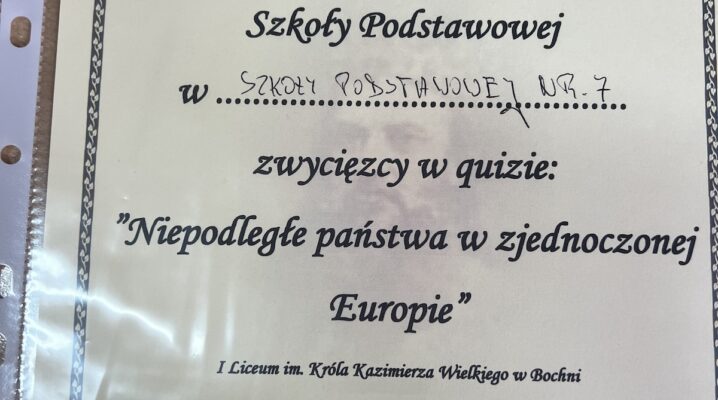 Szkoły Podstawowej
w SZKOŁY PODSTAWOWEJ NR. 7
zwycięzcy w quizie:
"Niepodległe państwa w zjednoczonej
Europie"
I Liceum im. Króla Kazimierza Wielkiego w Bochni